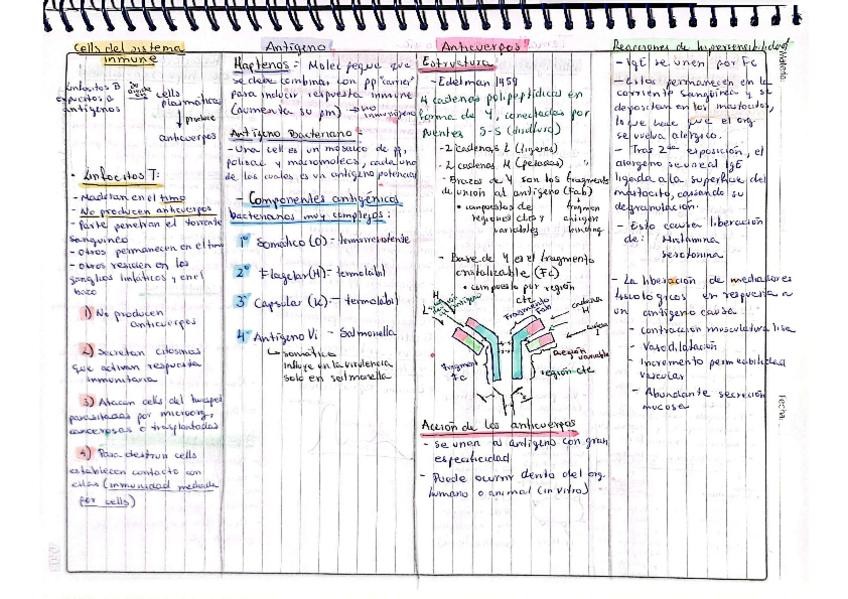 Cells del sistema
inmune
Linfocitos B
expuestos a
antígenos
cells
plasmáticas
produce
anticuerpos
• Linfocitos T:
- Maduran en el timo
- No producen anticuerpos
- Parte penetran el torrente
sanguíneo
- otros permanecen en el timo
- otros residen en los
ganglios linfáticos y en el
bazo
1) No producen
anticuerpos
2) Secretan citosinas
que activan respuesta
inmunitaria
3) Atacan cells del huesped
parasitadas por microorg,
cancerosas o trasplantadas
4) Para destruir cells
establecen contacto con
ellas (inmunidad mediada
por cells)
Antígeno
Haptenos: Molec peque que
se debe combinar con pp "carrier"
para inducir respuesta inmune
(aumenta su pm) → no inmunógeno
Antígeno Bacteriano:
- Una cel es un mosaico de
polisac y macromolecs, cada uno
de los cuales es un antígeno potencial
- Componentes antigénicos
bacterianos muy complejos:
1° Somático (O) - termorresistente
2° Flagelar (H) - termolabil
3° Capsular (K) - termolabil
4° Antígeno Vi - Salmonella
somático
influye en la virulencia
solo en salmonella
Anticuerpos
Estructura
- Edelman 1959
4 cadenas polipeptídicas en
forma de Y, conectadas por
puentes S-S (disulfuro)
- 2 cadenas L (ligeras)
- 2 cadenas H (pesadas)
- Brazos de Y son los fragments
de unión al antígeno (Fab)
• compuestos de
regiones ctes y
variables
fragmen
antigen
binding
- Base de Y es el fragmento
cristalizable (Fc)
• compuesto por región
cte
Fragmento
Fab
cadena
H
cadena
L
Región variable
región cte
fragmento
Fc
Acción de los anticuerpos
- se unen al antígeno con gran
especificidad
- Puede ocurrir dentro del org.
humano o animal (in vivo)
Reacciones de hipersensibilidad
- IgE se unen por Fc
- Estos permanecen en la
corriente sanguínea y se
depositan en los mastocitos,
lo que hace que el org
se vuelva alérgico.
- Tras 2da exposición, el
alergeno se une al IgE
ligada a la superficie del
mastocito, causando su
degranulación.
- Esto causa liberación
de: Histamina
serotonina
- La liberación de mediadores
fisiológicos en respuesta a
un antígeno causa:
- contracción musculatura lisa
- Vasodilatación
- Incremento permeabilidad
vascular
- Abundante secreción
mucosa
Fecha